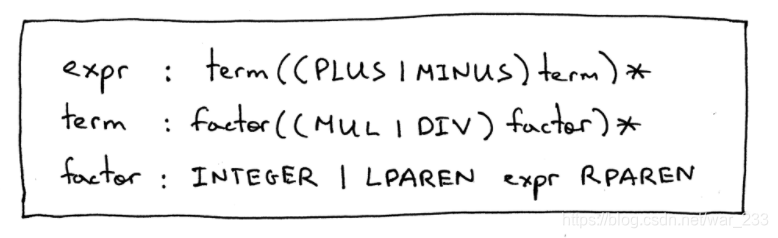 expr : term((PLUS | MINUS) term)*
term : factor((MUL | DIV) factor)*
factor : INTEGER | LPAREN expr RPAREN
https://blog.csdn.net/war_233